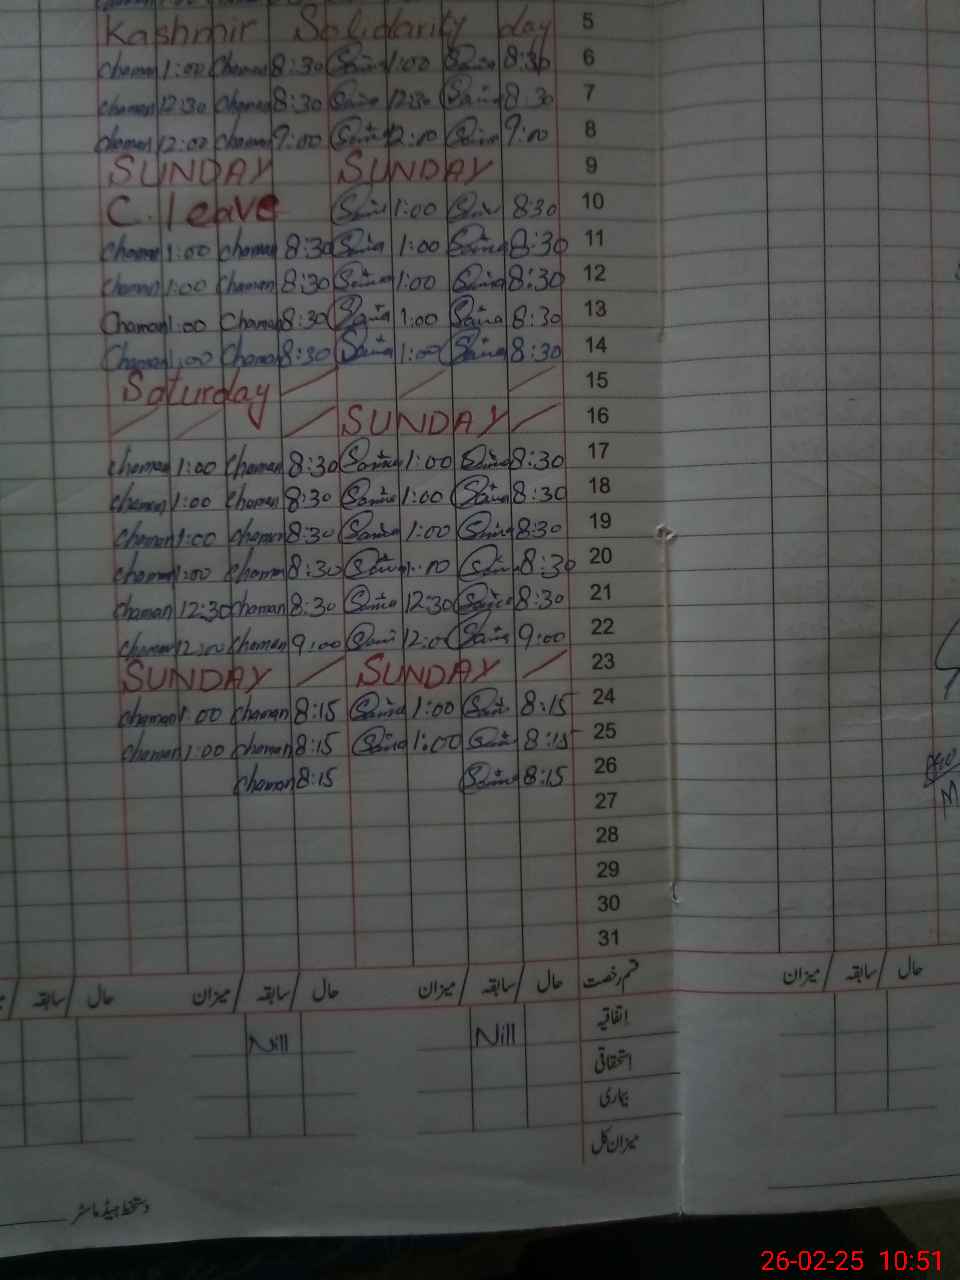 Kashmir Solidarity day 5
Chaman 1:00 Chaman 8:30 Saima 1:00 Saima 8:30 6
Chaman 12:30 Chaman 8:30 Saima 12:30 Saima 8:30 7
Chaman 12:00 Chaman 9:00 Saima 12:00 Saima 9:00 8
SUNDAY SUNDAY 9
C. leave Saima 1:00 Saima 8:30 10
Chaman 1:00 Chaman 8:30 Saima 1:00 Saima 8:30 11
Chaman 1:00 Chaman 8:30 Saima 1:00 Saima 8:30 12
Chaman 1:00 Chaman 8:30 Saima 1:00 Saima 8:30 13
Chaman 1:00 Chaman 8:30 Saima 1:00 Saima 8:30 14
Saturday 15
SUNDAY 16
Chaman 1:00 Chaman 8:30 Saima 1:00 Saima 8:30 17
Chaman 1:00 Chaman 8:30 Saima 1:00 Saima 8:30 18
Chaman 1:00 Chaman 8:30 Saima 1:00 Saima 8:30 19
Chaman 1:00 Chaman 8:30 Saima 1:00 Saima 8:30 20
Chaman 12:30 Chaman 8:30 Saima 12:30 Saima 8:30 21
Chaman 12:00 Chaman 9:00 Saima 12:00 Saima 9:00 22
SUNDAY SUNDAY 23
Chaman 1:00 Chaman 8:15 Saima 1:00 Saima 8:15 24
Chaman 1:00 Chaman 8:15 Saima 1:00 Saima 8:15 25
Chaman 8:15 Saima 8:15 26
27
28
29
30
31
حال / سابقہ / میزان قسم رخصت حال / سابقہ / میزان حال / سابقہ / میزان حال / سابقہ
اتفاقیہ
Nill Nill
استحقاقی
بیماری
میزان کل
دستخط ہیڈ ماسٹر
26-02-25 10:51